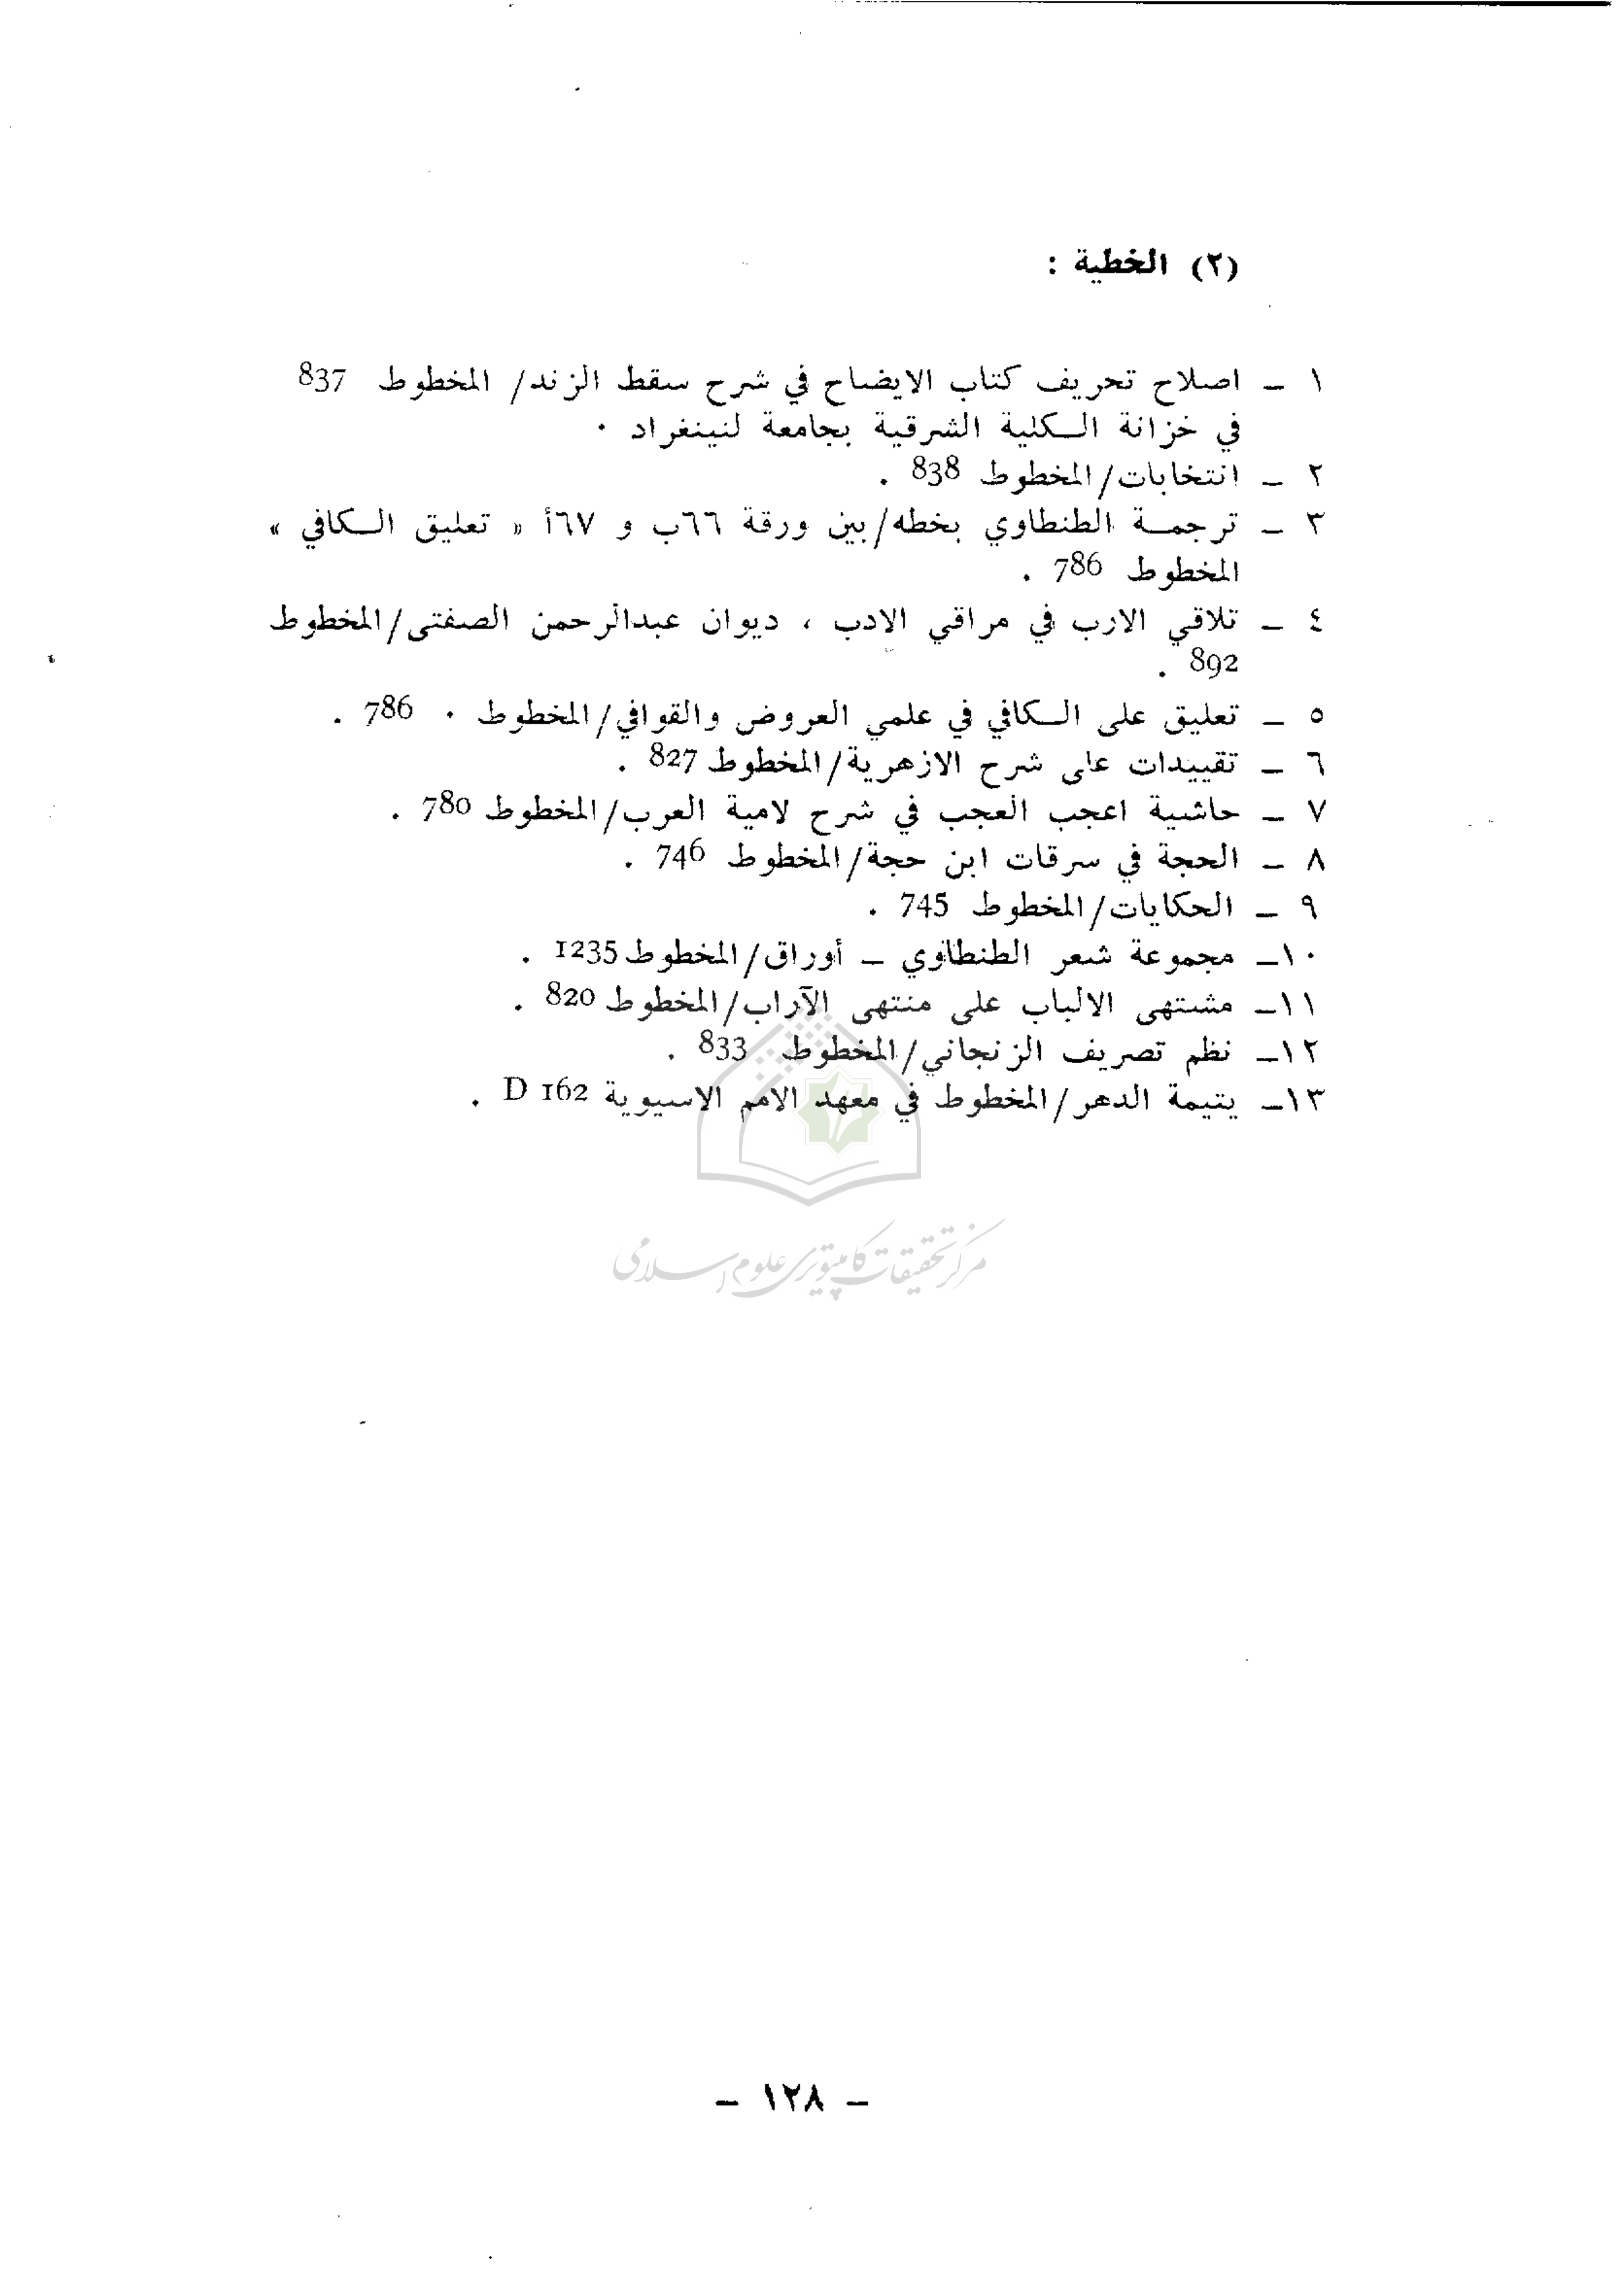 (٢) الخطية :
١ – اصلاح تحريف كتاب الايضاح في شرح سقط الزند/ المخطوط 837
في خزانة الـكلية الشرقية بجامعة لنينغراد ٠
٢ – انتخابات/المخطوط 838 .
٣ – ترجمــة الطنطاوي بخطه/بين ورقة ٦٦ب و ٦٧أ « تعليق الـكافي »
المخطوط 786 .
٤ – تلاقي الارب في مراقي الادب ، ديوان عبدالرحمن الصفتى/المخطوط
892 .
٥ – تعليق على الـكافي في علمي العروض والقوافي/المخطوط ٠ 786 .
٦ – تقييدات على شرح الازهرية/المخطوط 827 .
٧ – حاشية اعجب العجب في شرح لامية العرب/المخطوط 780 .
٨ – الحجة في سرقات ابن حجة/المخطوط 746 .
٩ – الحكايات/المخطوط 745 .
١٠– مجموعة شعر الطنطاوي – أوراق/المخطوط 1235 .
١١– مشتهى الالباب على منتهى الآراب/المخطوط 820 .
١٢– نظم تصريف الزنجاني/المخطوط 833 .
١٣– يتيمة الدهر/المخطوط في معهد الامم الاسيوية D 162 .
مرکز تحقیقات کامپیوتری علوم اسلامی
– ١٢٨ –